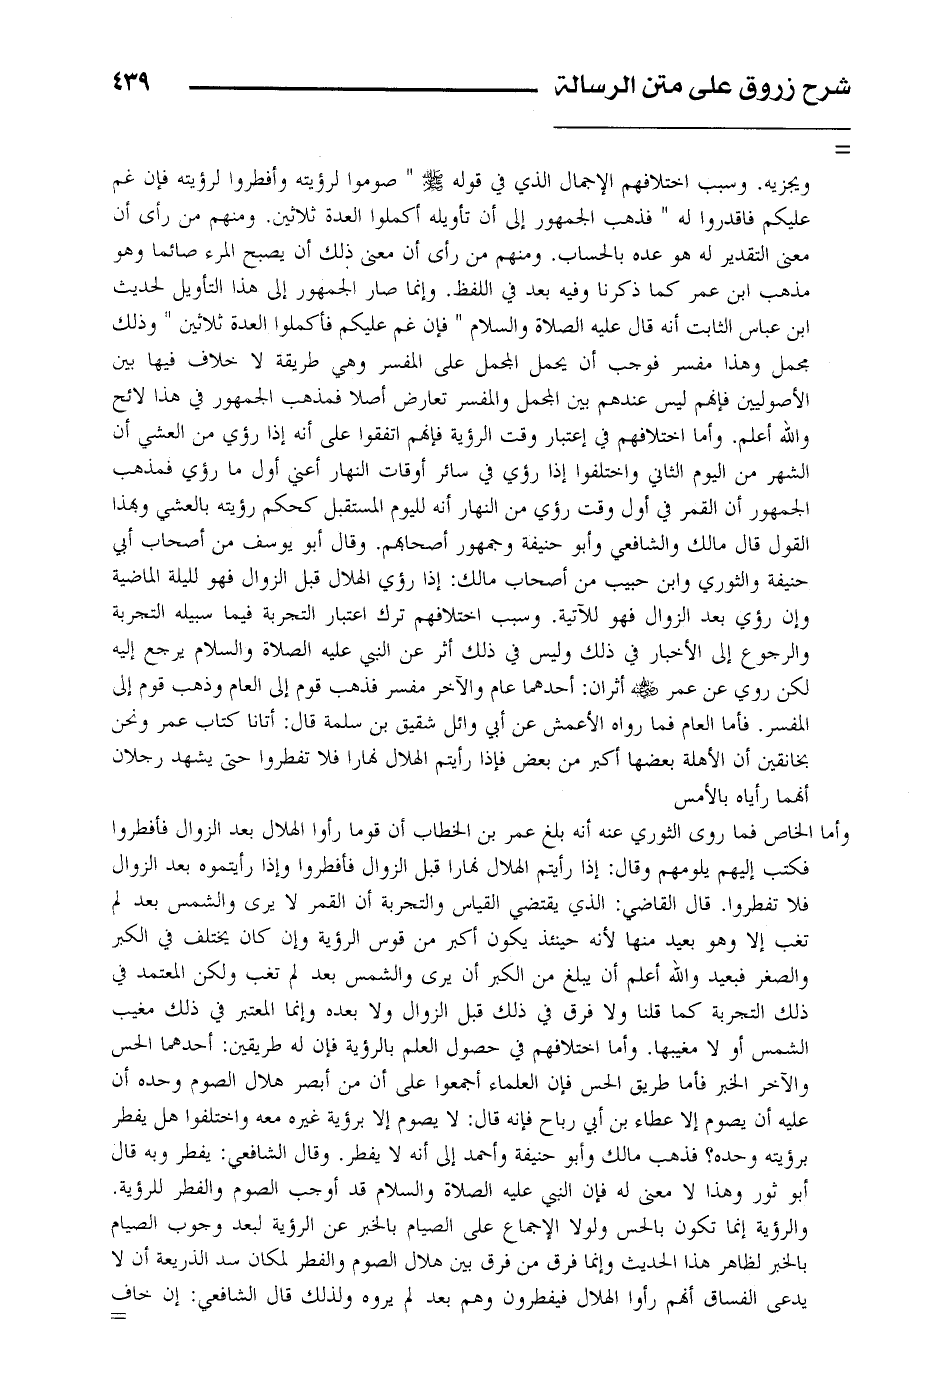 شرح زروق على متن الرسالة ٤٣٩
=
ويجزيه. وسبب اختلافهم الإجمال الذي في قوله ﷺ " صوموا لرؤيته وأفطروا لرؤيته فإن غم
عليكم فاقدروا له " فذهب الجمهور إلى أن تأويله أكملوا العدة ثلاثين. ومنهم من رأى أن
معنى التقدير له هو عده بالحساب. ومنهم من رأى أن معنى ذلك أن يصبح المرء صائما وهو
مذهب ابن عمر كما ذكرنا وفيه بعد في اللفظ. وإنما صار الجمهور إلى هذا التأويل لحديث
ابن عباس الثابت أنه قال عليه الصلاة والسلام " فإن غم عليكم فأكملوا العدة ثلاثين " وذلك
مجمل وهذا مفسر فوجب أن يحمل المجمل على المفسر وهي طريقة لا خلاف فيها بين
الأصوليين فإنهم ليس عندهم بين المجمل والمفسر تعارض أصلا فمذهب الجمهور في هذا لائح
والله أعلم. وأما اختلافهم في إعتبار وقت الرؤية فإنهم اتفقوا على أنه إذا رؤي من العشي أن
الشهر من اليوم الثاني واختلفوا إذا رؤي في سائر أوقات النهار أعني أول ما رؤي فمذهب
الجمهور أن القمر في أول وقت رؤي من النهار أنه لليوم المستقبل كحكم رؤيته بالعشي وبهذا
القول قال مالك والشافعي وأبو حنيفة وجمهور أصحابهم. وقال أبو يوسف من أصحاب أبي
حنيفة والثوري وابن حبيب من أصحاب مالك: إذا رؤي الهلال قبل الزوال فهو لليلة الماضية
وإن رؤي بعد الزوال فهو للآتية. وسبب اختلافهم ترك اعتبار التجربة فيما سبيله التجربة
والرجوع إلى الأخبار في ذلك وليس في ذلك أثر عن النبي عليه الصلاة والسلام يرجع إليه
لكن روي عن عمر ﷺ أثران: أحدهما عام والآخر مفسر فذهب قوم إلى العام وذهب قوم إلى
المفسر. فأما العام فما رواه الأعمش عن أبي وائل شقيق بن سلمة قال: أتانا كتاب عمر ونحن
بخانقين أن الأهلة بعضها أكبر من بعض فإذا رأيتم الهلال نهارا فلا تفطروا حتى يشهد رجلان
أنهما رأياه بالأمس
وأما الخاص فما روى الثوري عنه أنه بلغ عمر بن الخطاب أن قوما رأوا الهلال بعد الزوال فأفطروا
فكتب إليهم يلومهم وقال: إذا رأيتم الهلال نهارا قبل الزوال فأفطروا وإذا رأيتموه بعد الزوال
فلا تفطروا. قال القاضي: الذي يقتضي القياس والتجربة أن القمر لا يرى والشمس بعد لم
تغب إلا وهو بعيد منها لأنه حينئذ يكون أكبر من قوس الرؤية وإن كان يختلف في الكبر
والصغر فبعيد والله أعلم أن يبلغ من الكبر أن يرى والشمس بعد لم تغب ولكن المعتمد في
ذلك التجربة كما قلنا ولا فرق في ذلك قبل الزوال ولا بعده وإنما المعتبر في ذلك مغيب
الشمس أو لا مغيبها. وأما اختلافهم في حصول العلم بالرؤية فإن له طريقين: أحدهما الحس
والآخر الخبر فأما طريق الحس فإن العلماء أجمعوا على أن من أبصر هلال الصوم وحده أن
عليه أن يصوم إلا عطاء بن أبي رباح فإنه قال: لا يصوم إلا برؤية غيره معه واختلفوا هل يفطر
برؤيته وحده؟ فذهب مالك وأبو حنيفة وأحمد إلى أنه لا يفطر. وقال الشافعي: يفطر وبه قال
أبو ثور وهذا لا معنى له فإن النبي عليه الصلاة والسلام قد أوجب الصوم والفطر للرؤية.
والرؤية إنما تكون بالحس ولولا الإجماع على الصيام بالخبر عن الرؤية لبعد وجوب الصيام
بالخبر لظاهر هذا الحديث وإنما فرق من فرق بين هلال الصوم والفطر لمكان سد الذريعة أن لا
يدعى الفساق أنهم رأوا الهلال فيفطرون وهم بعد لم يروه ولذلك قال الشافعي: إن خاف
=